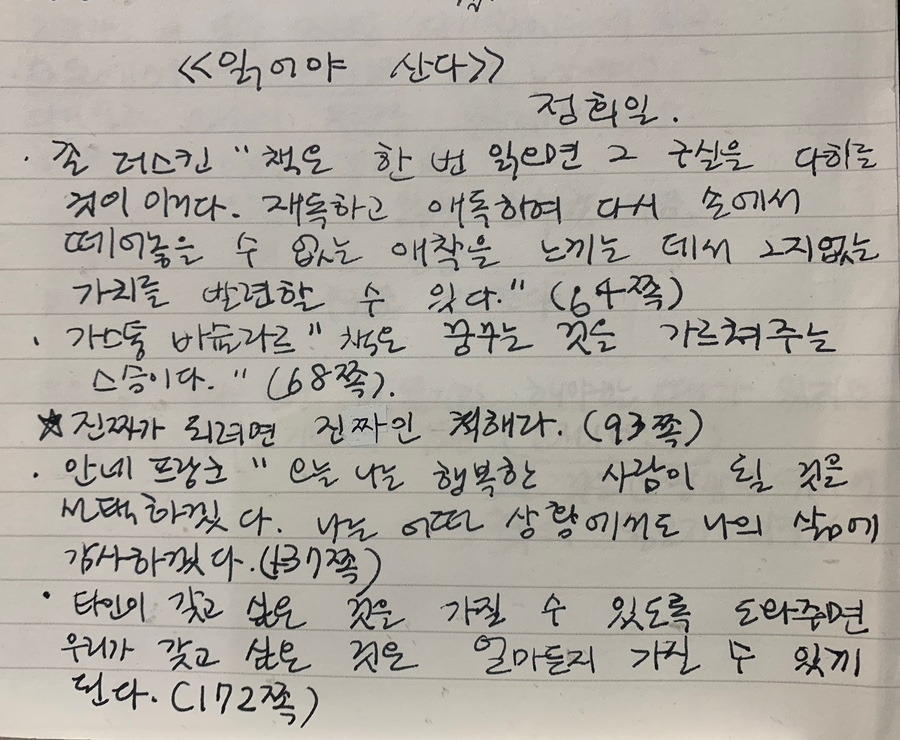 <<읽어야 산다>>
정회일.
· 존 러스킨 "책은 한 번 읽으면 그 구실을 다하는
것이 아니다. 재독하고 애독하며 다시 손에서
떼어놓을 수 없는 애착을 느끼는 데서 그지없는
가치를 발견할 수 있다." (64쪽)
· 가스통 바슐라르 " 책은 꿈꾸는 것을 가르쳐주는
스승이다. " (68쪽).
★ 진짜가 되려면 진짜인 척해라. (93쪽)
· 안네 프랑크 " 오늘 나는 행복한 사람이 될 것을
선택하겠다. 나는 어떤 상황에서도 나의 삶에
감사하겠다.(137쪽)
· 타인이 갖고 싶은 것을 가질 수 있도록 도와주면
우리가 갖고 싶은 것은 얼마든지 가질 수 있게
된다. (172쪽)